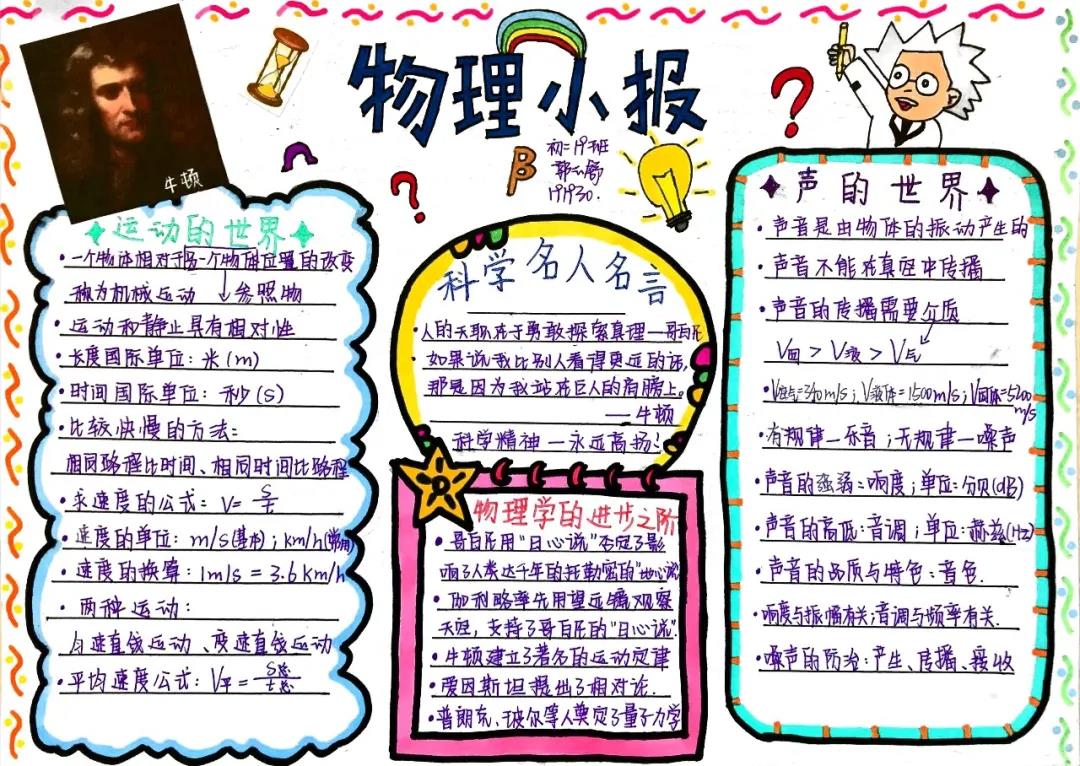 物理小报
初二19班
191930.
β
牛顿
运动的世界
·一个物体相对于另一个物体位置的改变
称为机械运动 参照物
·运动和静止具有相对性
·长度国际单位：米(m)
·时间国际单位：秒(s)
·比较快慢的方法：
相同路程比时间、相同时间比路程
·求速度的公式：V=s/t
·速度的单位：m/s(基本)；km/h(常用)
·速度的换算：1m/s=3.6km/h
·两种运动：
匀速直线运动、变速直线运动
·平均速度公式：V平=S总/t总
科学名人名言
·人的天职在于勇敢探索真理—哥白尼
·如果说我比别人看得更远的话，
那是因为我站在巨人的肩膀上。
——牛顿
科学精神—永远高扬！
物理学的进步之阶
·哥白尼用"日心说"否定了影
响了人类达千年的托勒密的"地心说"
·伽利略率先用望远镜观察
天空，支持了哥白尼的"日心说".
·牛顿建立了著名的运动定律
·爱因斯坦提出了相对论.
·普朗克、玻尔等人奠定了量子力学
声的世界
·声音是由物体的振动产生的
·声音不能在真空中传播
·声音的传播需要介质
V固>V液>V气
·V空气=340m/s；V液体=1500m/s；V固体=5200m/s
·有规律—乐音；无规律—噪声
·声音的强弱：响度；单位：分贝(dB)
·声音的高低：音调；单位：赫兹(Hz)
·声音的品质与特色：音色.
·响度与振幅有关；音调与频率有关.
·噪声的防治：产生、传播、接收